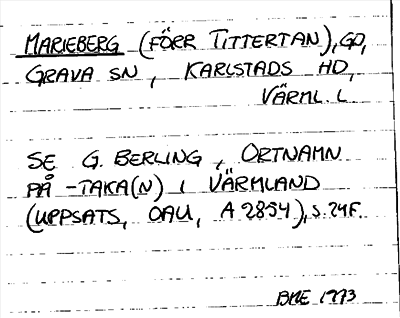 MARIEBERG (FÖRR TITTERTAN), GD,
GRAVA SN, KARLSTADS HD,
VÄRML. L.
SE G. BERLING, ORTNAMN
PÅ -TAKA(N) I VÄRMLAND
(UPPSATS, OAU, A 2854), S. 24F.
BME 1973